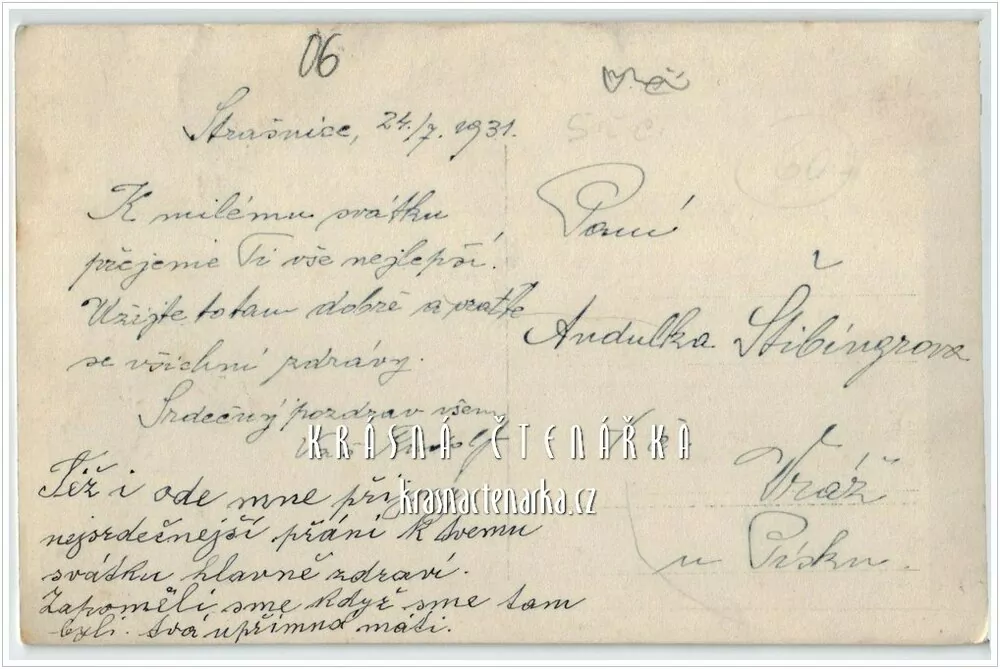 06
Strašnice, 24./7. 1931.
K milému svátku
přejeme Ti vše nejlepší.
Užijte to tam dobře a vraťte
se všichni zdrávy.
Srdečný pozdrav všem
Váš
Též i ode mne
nejsrdečnější přání k tvemu
svátku hlavně zdraví.
Zapoměli sme když sme tam
byli. tvá upřimná máti.
Paní
Andulka Štibingrova
Vráž
u Písku.
KRÁSNÁ ČTENÁŘKA
krasnactenarka.cz